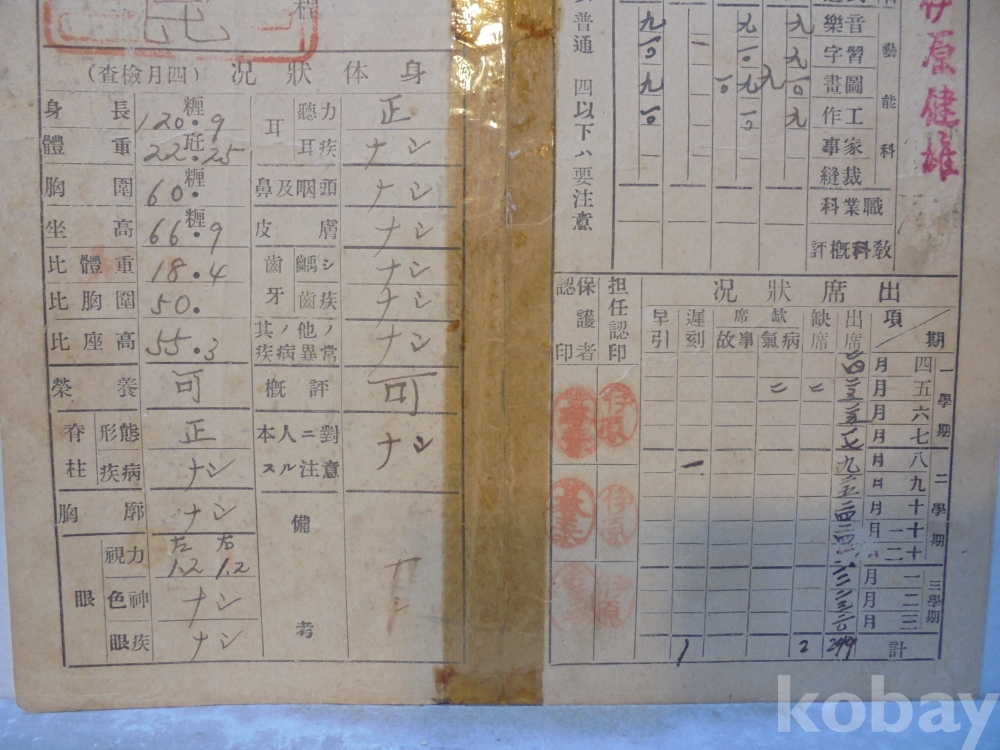 程
身体狀況（四月檢查）
身長 糎 120.9
體重 瓩 22.25
胸圍 糎 60.
坐高 糎 66.9
比體重 18.4
比胸圍 50.
比座高 55.3
榮養 可
脊柱 形態 正
疾病 ナシ
胸廓 ナシ
眼 視力 左 1.2 右 1.2
色神 ナシ
眼疾 ナシ
耳 聽力 正
耳疾 ナシ
鼻及咽頭 ナシ
皮膚 ナシ
齒牙 齲シ ナシ
齒疾 ナシ
其ノ他ノ疾病異常 ナシ
概評 可
本人ニ對スル注意 ナシ
備考
普通 四以下ハ要注意
藝能科
音樂
習字
圖畫
工作
家事
裁縫
職業科
敎科概評
伊原健雄
出席狀況
期 項 出席 缺席 缺席 病氣 事故 遲刻 早引 担任認印 保護者認印
一學期 四月
五月 二 二
六月
七月
二學期 八月
九月 一
十月
十一月
十二月
三學期 一月
二月
三月
計 2 1
伊原
伊原
伊原
kobay